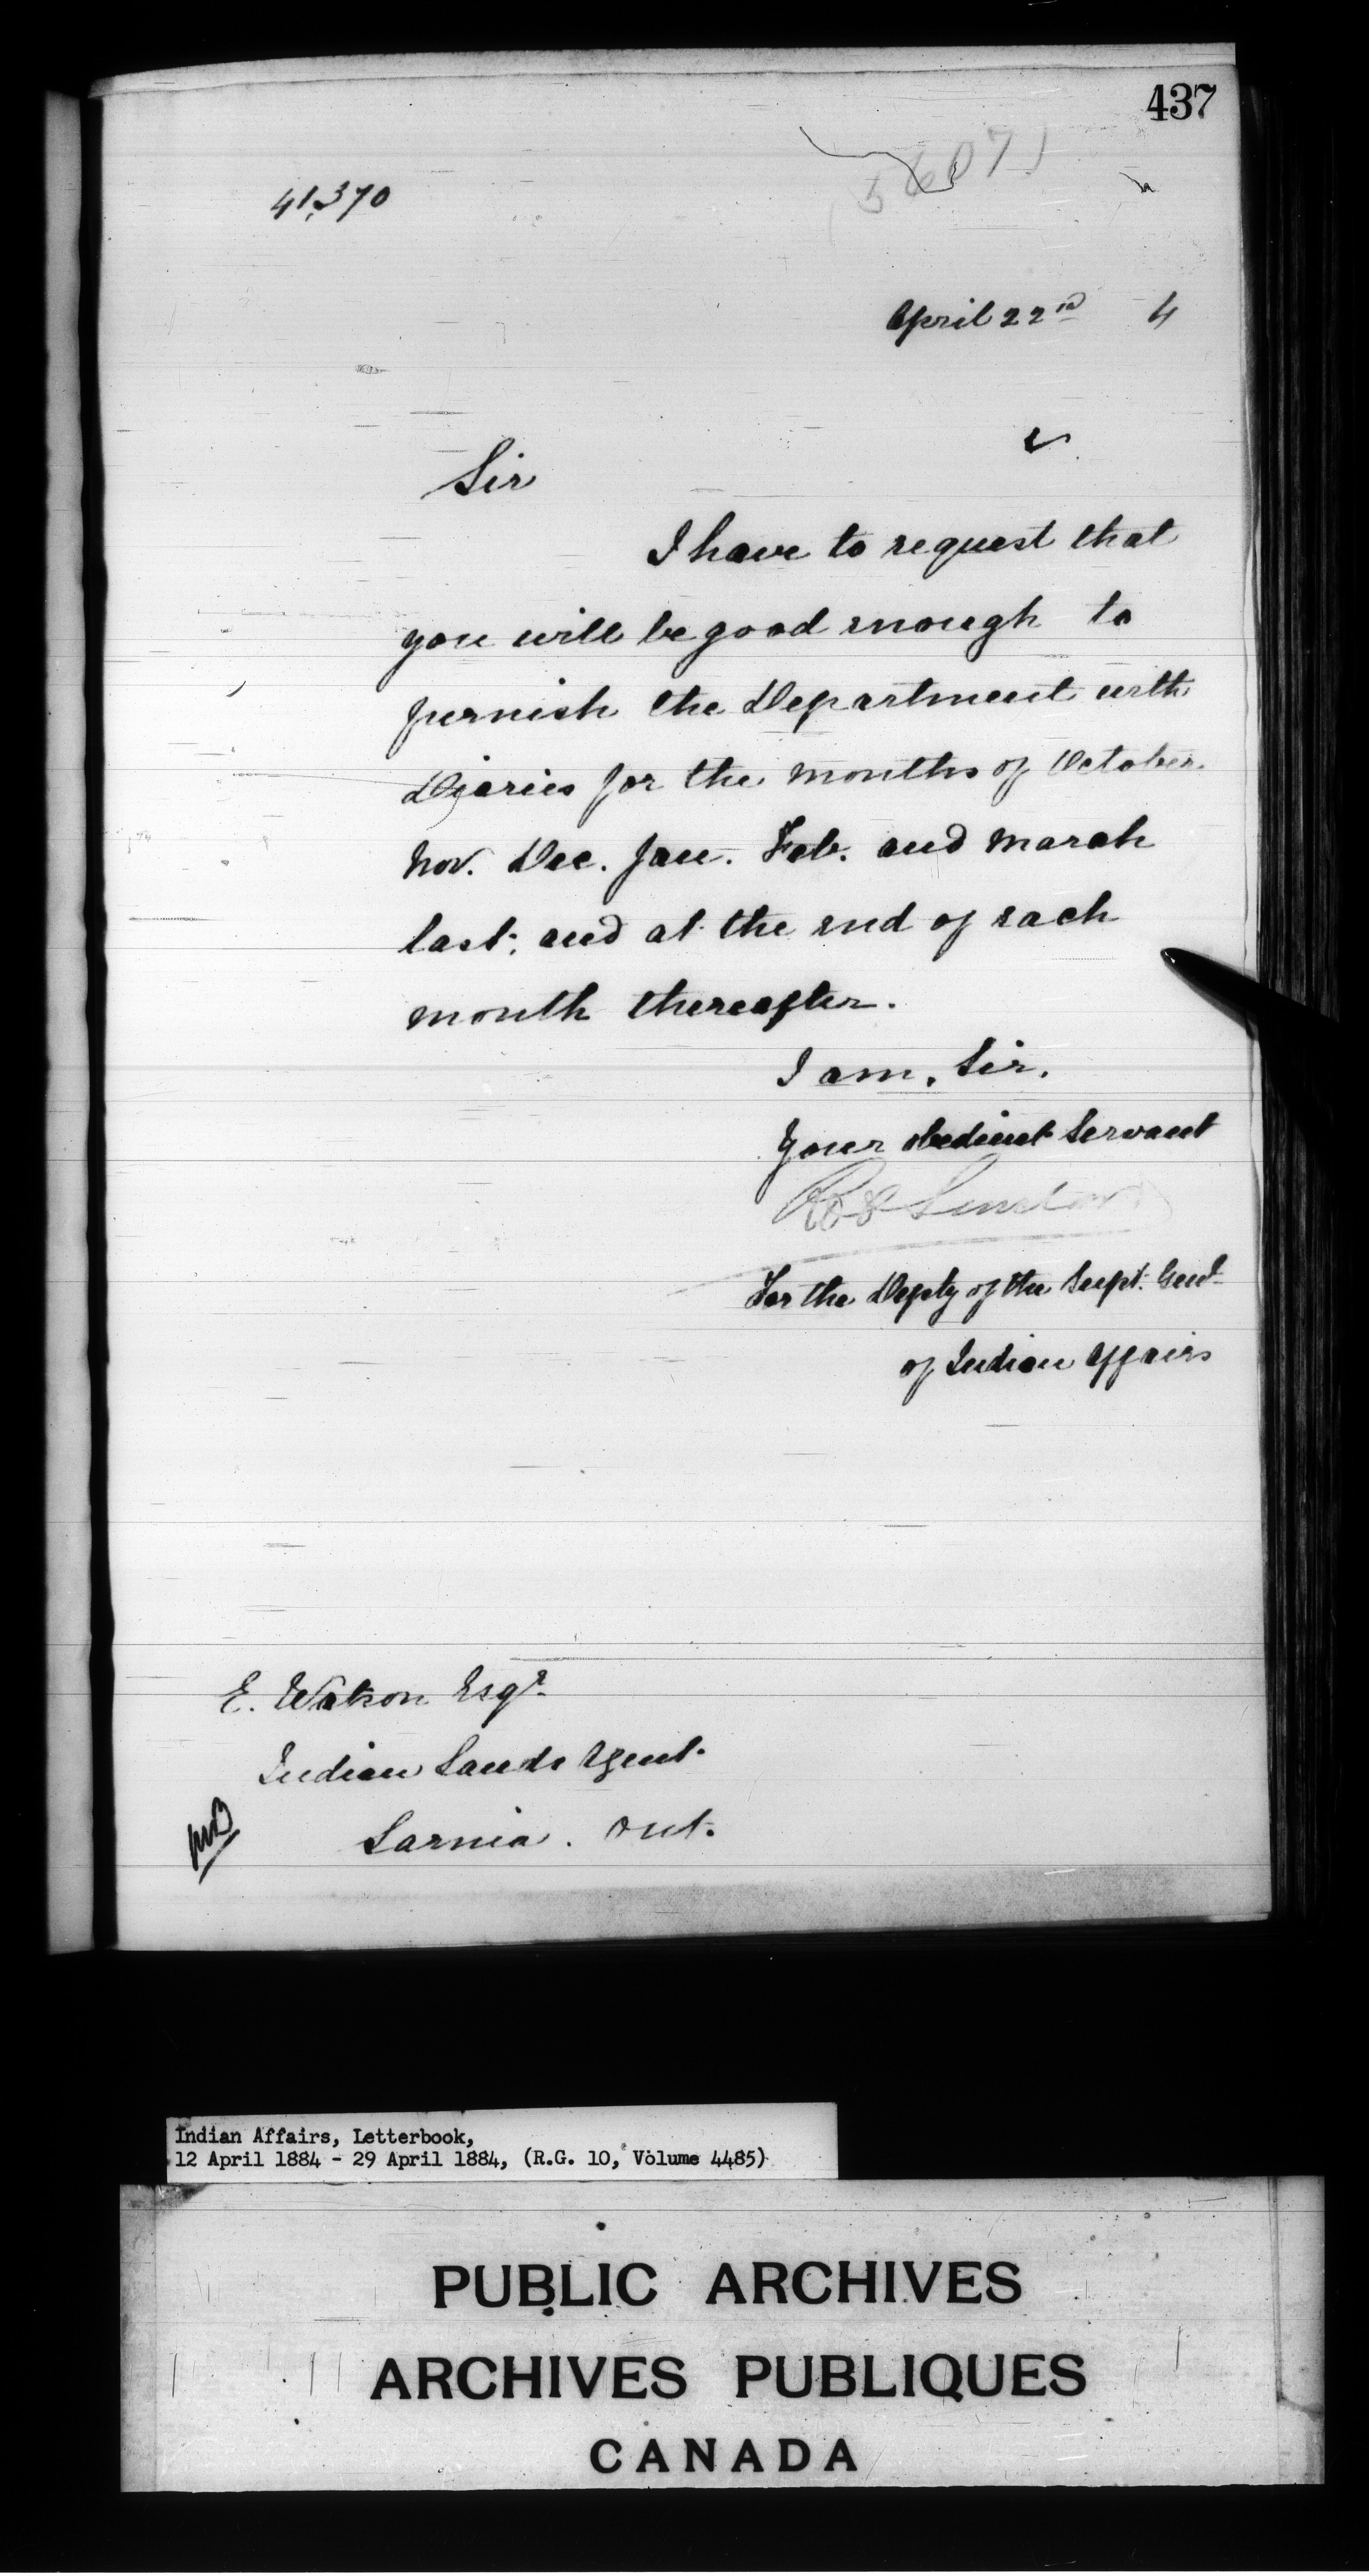 437
(5607)
41,370
April 22nd 4
Sir
I have to request that
you will be good enough to
furnish the Department with
Diaries for the months of October.
Nov. Dec. Jan. Feb. and March
last, and at the end of each
month thereafter.
I am, Sir,
Your obedient Servant
Sinclair
For the Depty of the Supt. Genl
of Indian Affairs
E. Watson Esqr.
Indian Lands Agent.
Sarnia. Ont.
Indian Affairs, Letterbook,
12 April 1884 - 29 April 1884, (R.G. 10, Volume 4485)
PUBLIC ARCHIVES
ARCHIVES PUBLIQUES
CANADA